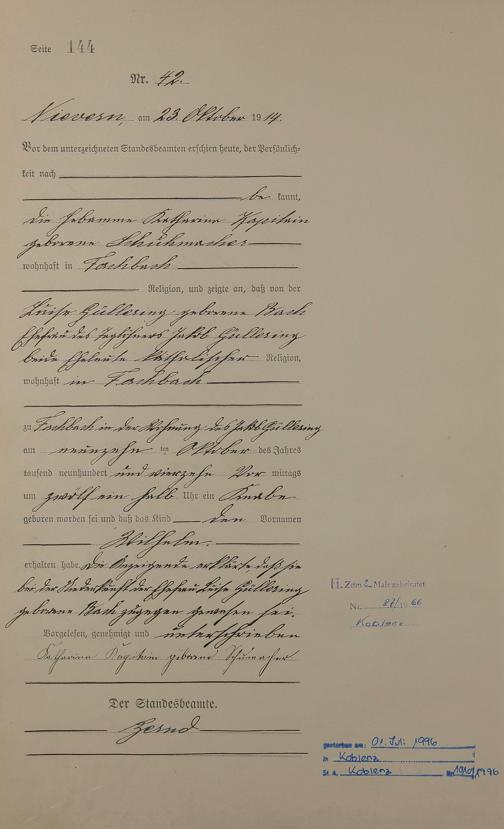 Seite 144
Nr. 42.
Nievern, am 23. Oktober 1914.
Vor dem unterzeichneten Standesbeamten erschien heute, der Persönlich-
keit nach
be kannt,
die Hebamme Katharina Kapitain
geborene Schuhmacher
wohnhaft in Fachbach
Religion, und zeigte an, daß von der
Luise Güllering geborene Bach
Ehefrau des Taglöhners Jakob Güllering
beide Eheleute katholischer Religion,
wohnhaft in Fachbach
zu Fachbach in der Wohnung des Jakob Güllering
am neunzehn ten Oktober des Jahres
tausend neunhundert und vierzehn Vor mittags
um zwölf ein halb Uhr ein Knabe
geboren worden sei und daß das Kind den Vornamen
Wilhelm.
erhalten habe. Die Anzeigende erklärte daß sie
bei der Niederkunft der Ehefrau Luise Güllering
geborene Bach zugegen gewesen sei.
Vorgelesen, genehmigt und unterschrieben
Katharina Kapitain geborene Schumacher
Der Standesbeamte.
H. Zum 2. Male geheiratet
Nr. 87/19 66
Koblenz
gestorben am: 01. Juli 1996
in Koblenz
St. A. Koblenz Nr. 1910/1996